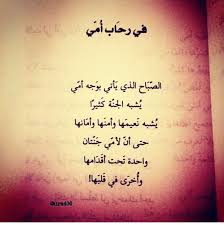 في رحَاب أمّي
الصّبَاح الذي يَأتي بوَجه أمّي
يُشبه الجنّة كَثيرًا
يُشبه نَعيمَها وأمنَها وأمَانَها
حتى أنّ لأمّي جَنّتان
واحدة تَحت أقدَامها
وأُخرَى في قَلبَها!